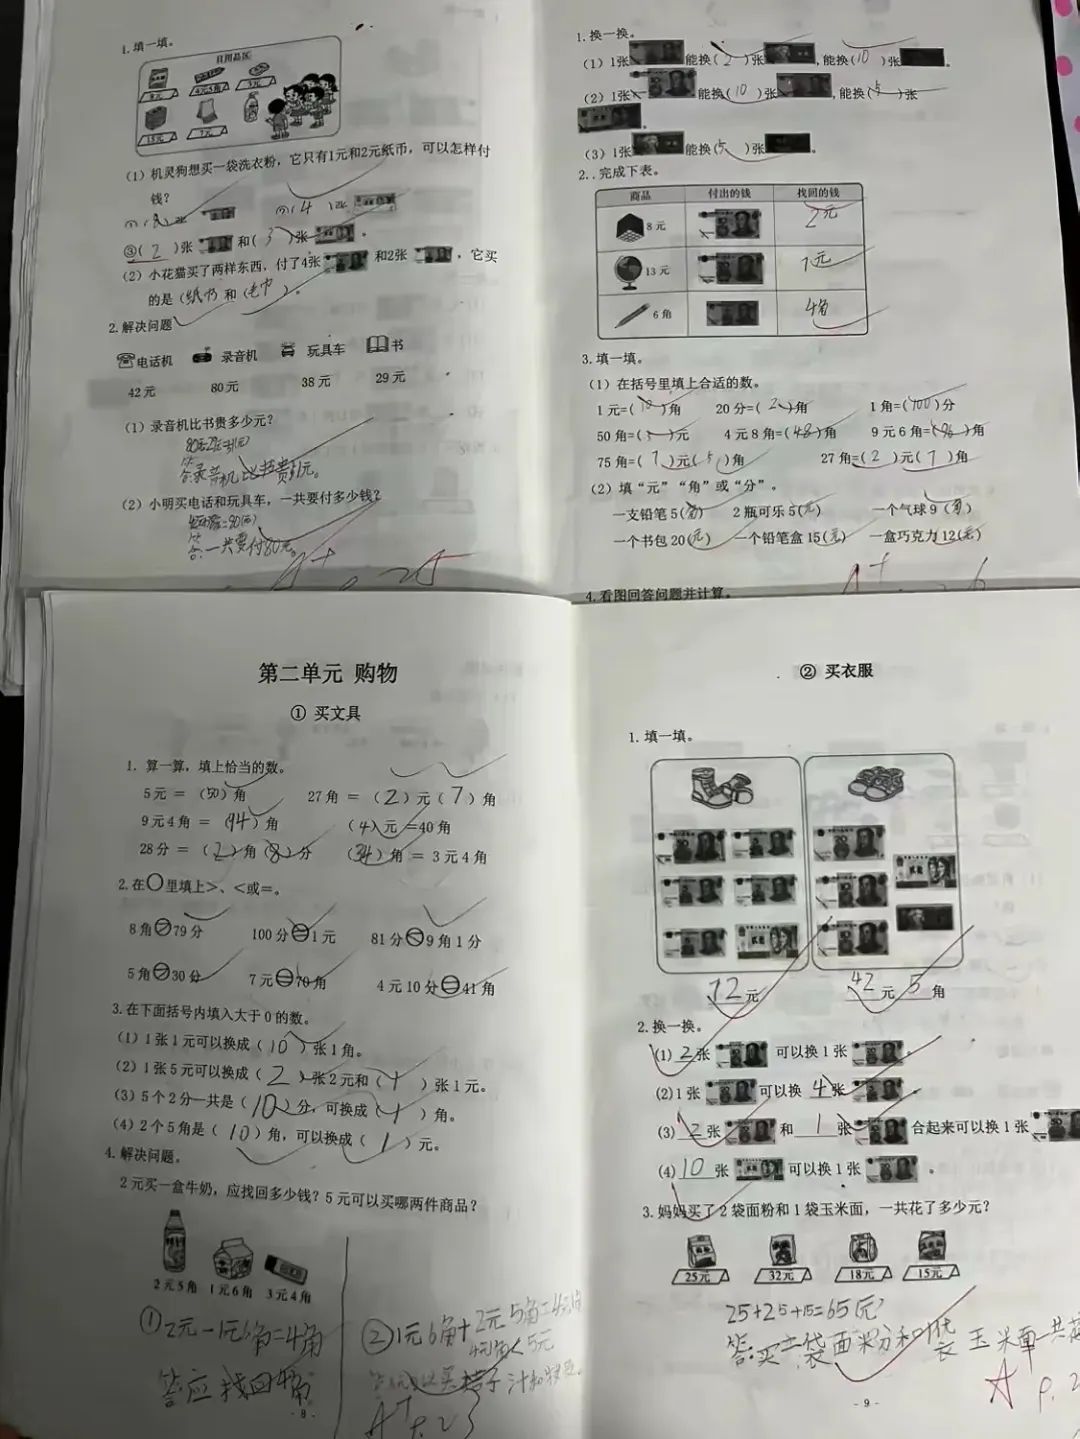 1.填一填。
日用品区
8元 4元5角 5元
15元 7元
(1) 机灵狗想买一袋洗衣粉，它只有1元和2元纸币，可以怎样付
钱？
③(2)张 和(3)张 。
(2) 小花猫买了两样东西，付了4张 和2张 ，它买
的是(纸巾和(毛巾)。
2.解决问题
电话机 录音机 玩具车 书
42元 80元 38元 29元
(1) 录音机比书贵多少元？
答:录音机比书贵51元。
(2) 小明买电话和玩具车，一共要付多少钱？
答:一共要付80元。
A+
1.换一换。
(1) 1张 能换(2)张 ,能换(10)张 。
(2) 1张 能换(10)张 ,能换(5)张
。
(3) 1张 能换(5)张 。
2..完成下表。
商品 付出的钱 找回的钱
8元 2元
13元 7元
6角 4角
3.填一填。
(1) 在括号里填上合适的数。
1元=(10)角 20分=(2)角 1角=(100)分
50角=(5)元 4元8角=(48)角 9元6角=(96)角
75角=(7)元(5)角 27角=(2)元(7)角
(2) 填“元”“角”或“分”。
一支铅笔5(角) 2瓶可乐5(元) 一个气球9(角)
一个书包20(元) 一个铅笔盒15(元) 一盒巧克力12(元)
A+
4.看图回答问题并计算。
第二单元 购物
① 买文具
1. 算一算，填上恰当的数。
5元 = (50)角 27角 = (2)元(7)角
9元4角 = (94)角 (4)元 =40角
28分 = (2)角(8)分 (34)角 = 3元4角
2.在○里填上>、<或=。
8角 79分 100分=1元 81分 9角1分
5角 30分 7元=70角 4元10分=41角
3.在下面括号内填入大于0的数。
(1) 1张1元可以换成(10)张1角。
(2) 1张5元可以换成(2)张2元和(1)张1元。
(3) 5个2分一共是(10)分，可换成(1)角。
(4) 2个5角是(10)角，可以换成(1)元。
4.解决问题。
2元买一盒牛奶，应找回多少钱？5元可以买哪两件商品？
2元5角 1元6角 3元4角
①2元-1元6角=4角
答应找回4角
②1元6角+2元5角=4元1角
4元1角<5元
A+
- 8 -
② 买衣服
1.填一填。
72元 42元5角
2.换一换。
(1) 2张 可以换1张 。
(2) 1张 可以换 4张 。
(3) 2张 和 1张 合起来可以换1张
(4) 10张 可以换1张 。
3.妈妈买了2袋面粉和1袋玉米面，一共花了多少元？
25元 32元 18元 15元
25+25+15=65(元)
答:买二袋面粉和1袋玉米面一共花
A
- 9 -